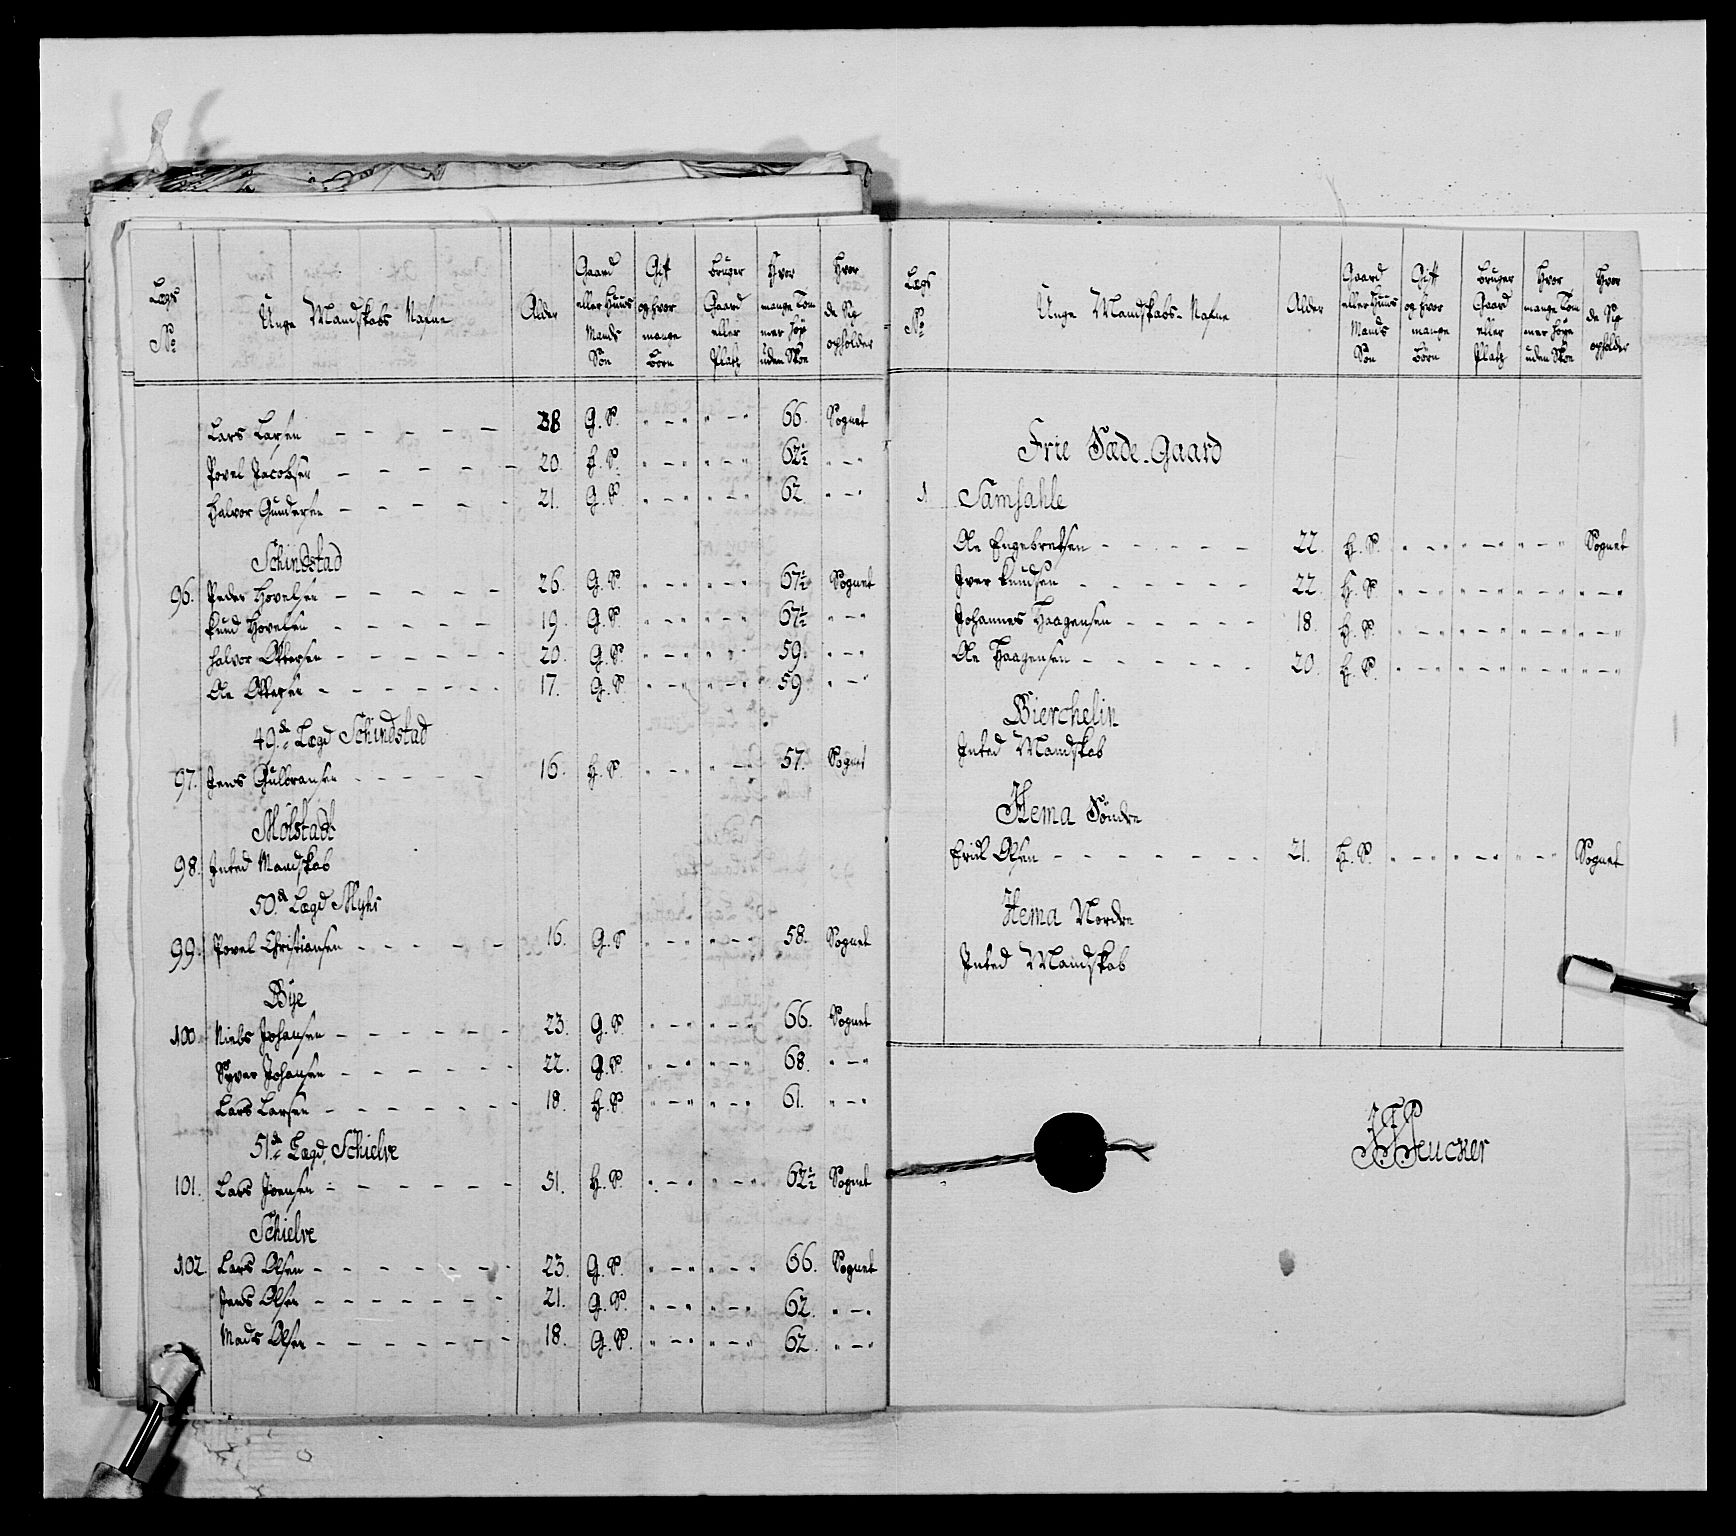 Lægs No
Unge Mandskabs Nafne
Alder
Gaard eller Huus Mands Søn
Gift og hvor mange Børn
Bruger Gaard eller Platz
Hvor mange Tommer høy uden Skoe
Hvor de sig opholder
Lars Larsen - - - - - 38 G. S. " - " " - " 66. Sognet
Povel Jacobsen - - - - - 20. H. S. " - " " - " 62½ " - "
Halvor Gundersen - - - - - 21. G. S. " - " " - " 62 " - "
Schindstad
96. Peder Hovelsen - - - - - 26. G. S. " - " " - " 67½ Sognet
Knud Hovelsen - - - - - 19. G. S. " - " " - " 67½ " - "
Halvor Ottersen - - - - - 20. G. S. " - " " - " 59. " - "
Ole Ottersen - - - - - - 17. G. S. " - " " - " 59 " - "
49.de Lægd Schindstad
97. Jens Gulbransen - - - - - 16. H. S. " - " " - " 57. Sognet
Molstad
98. Inted Mandskab
50.de Lægd Myhr
99. Povel Christiansen - - - - - 16. G. S " - " " - " 58. Sognet
Bye
100. Niels Johansen - - - - - 23. G. S. " - " " - " 66. Sognet
Syver Johansen - - - - - 22. G. S. " - " " - " 68. " - "
Lars Larsen - - - - - - 18. H. S. " - " " - " 61. " - "
51.de Lægd Schielve
101. Lars Joensen - - - - - - 31. H. S. " - " " - " 62½ Sognet
Schielve
102. Lars Olsen - - - - - - 23. G. S. " - " " - " 66. Sognet
Jens Olsen - - - - - - 21. G. S. " - " " - " 62. " - "
Mads Olsen - - - - - - 18. G. S. " - " " - " 62. " - "
Lægs No
Unge Mandskabs Nafne
Alder
Gaard eller Huus Mands Søn
Gift og hvor mange Børn
Bruger Gaard eller Platz
Hvor mange Tommer høye uden Skoe
Hvor de sig opholder
Frie Sæde-Gaard
1 Samsahle
Ole Engebretsen - - - - - 22. H. S. " - " " - " " - " Sognet
Iver Knudsen - - - - - - 22. H. S. " - " " - " " - " " - "
Johannes Haagensen - - - - - 18. H. S. " - " " - " " - " " - "
Ole Haagensen - - - - - - 20. H. S. " - " " - " " - " " - "
Bierchelin
Inted Mandskab
Hema Søndre
Erich Olsen - - - - - - - 21. H. S. " - " " - " " - " Sognet
Hema Nordre
Inted Mandskab